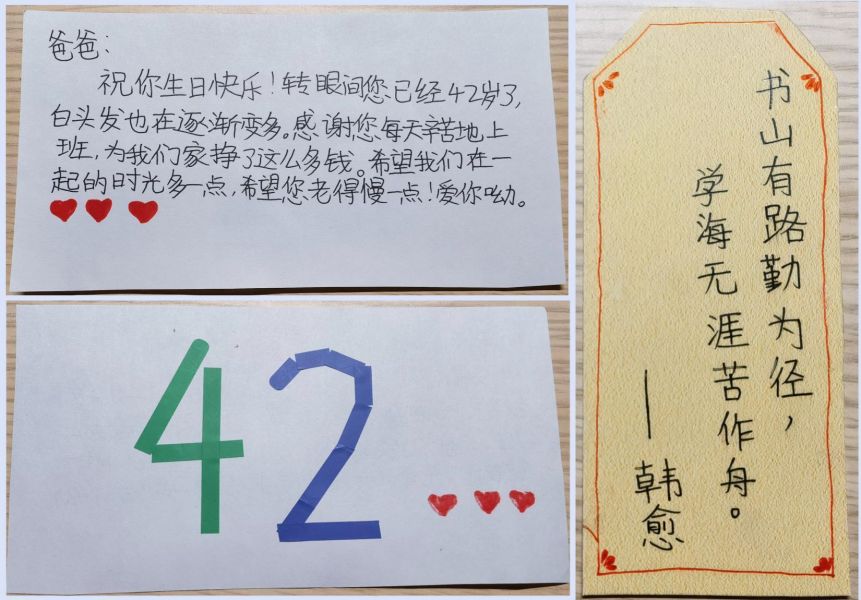 爸爸：
祝你生日快乐！转眼间您已经42岁了，
白头发也在逐渐变多。感谢您每天辛苦地上
班，为我们家挣了这么多钱。希望我们在一
起的时光多一点，希望您老得慢一点！爱你呦。
42
书山有路勤为径，
学海无涯苦作舟。
——韩愈